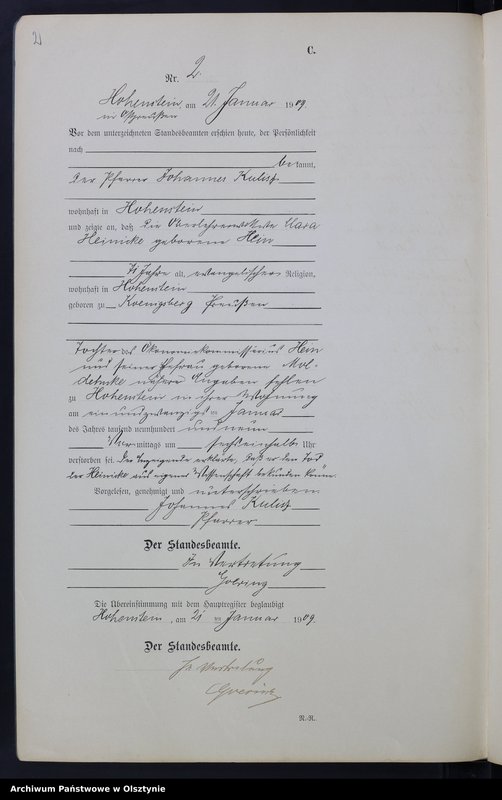 2
C.
Nr. 2
Hohenstein am 21 Januar 1909.
in Ostpreußen
Vor dem unterzeichneten Standesbeamten erschien heute, der Persönlichkeit
nach
bekannt,
der Pfarrer Johannes Kulisz
wohnhaft in Hohenstein
und zeigte an, daß die Oberlehrerwitwe Clara
Heinicke geborene Hein
71 Jahre alt, evangelischer Religion,
wohnhaft in Hohenstein
geboren zu Koenigsberg Preußen
Tochter des Ökonomiekommissarius Hein
und seiner Ehefrau geborene
nähere Angaben fehlen
zu Hohenstein in ihrer Wohnung
am einundzwanzigsten Januar
des Jahres tausend neunhundert und neun
Vormittags um sechseinhalb Uhr
verstorben sei. Der Anzeigende erklärte, daß er den Tod
der Heinicke aus eigener Wissenschaft bekunden könne.
Vorgelesen, genehmigt und unterschrieben
Johannes Kulisz
Pfarrer
Der Standesbeamte.
In Vertretung
Die Übereinstimmung mit dem Hauptregister beglaubigt
Hohenstein, am 21 ten Januar 1909.
Der Standesbeamte.
In Vertretung
R.-R.
Archiwum Państwowe w Olsztynie